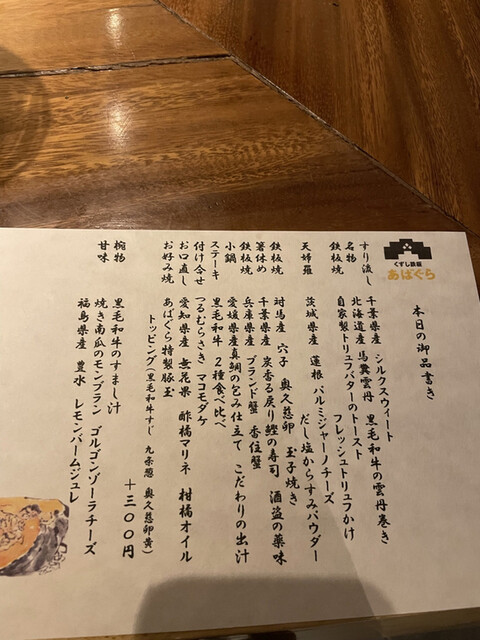 くずし鉄板
あばぐら
本日の御品書き
すり流し 千葉県産 シルクスウィート
名物 北海道産 馬糞雲丹 黒毛和牛の雲丹巻き
鉄板焼 自家製トリュフバターのトースト
フレッシュトリュフかけ
天婦羅 茨城県産 蓮根 パルミジャーノチーズ
だし塩からすみパウダー
鉄板焼 対馬産 穴子 奥久慈卵 玉子焼き
箸休め 千葉県産 炭香る戻り鰹の寿司 酒盗の薬味
鉄板焼 兵庫県産 ブランド蟹 香住蟹
小鍋 愛媛県産真鯛の包み仕立て こだわりの出汁
ステーキ 黒毛和牛 2種食べ比べ
付け合せ つるむらさき マコモダケ
お口直し 愛知県産 無花果 酢橘マリネ 柑橘オイル
お好み焼 あばぐら特製豚玉
トッピング(黒毛和牛すじ 九条葱 奥久慈卵黄)
+三〇〇円
椀物 黒毛和牛のすまし汁
甘味 焼き南瓜のモンブラン ゴルゴンゾーラチーズ
福島県産 豊水 レモンバームジュレ